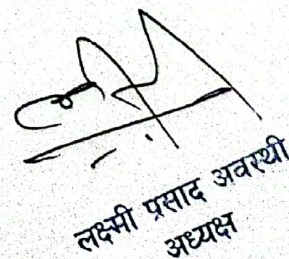 लक्ष्मी प्रसाद अवस्थी
अध्यक्ष